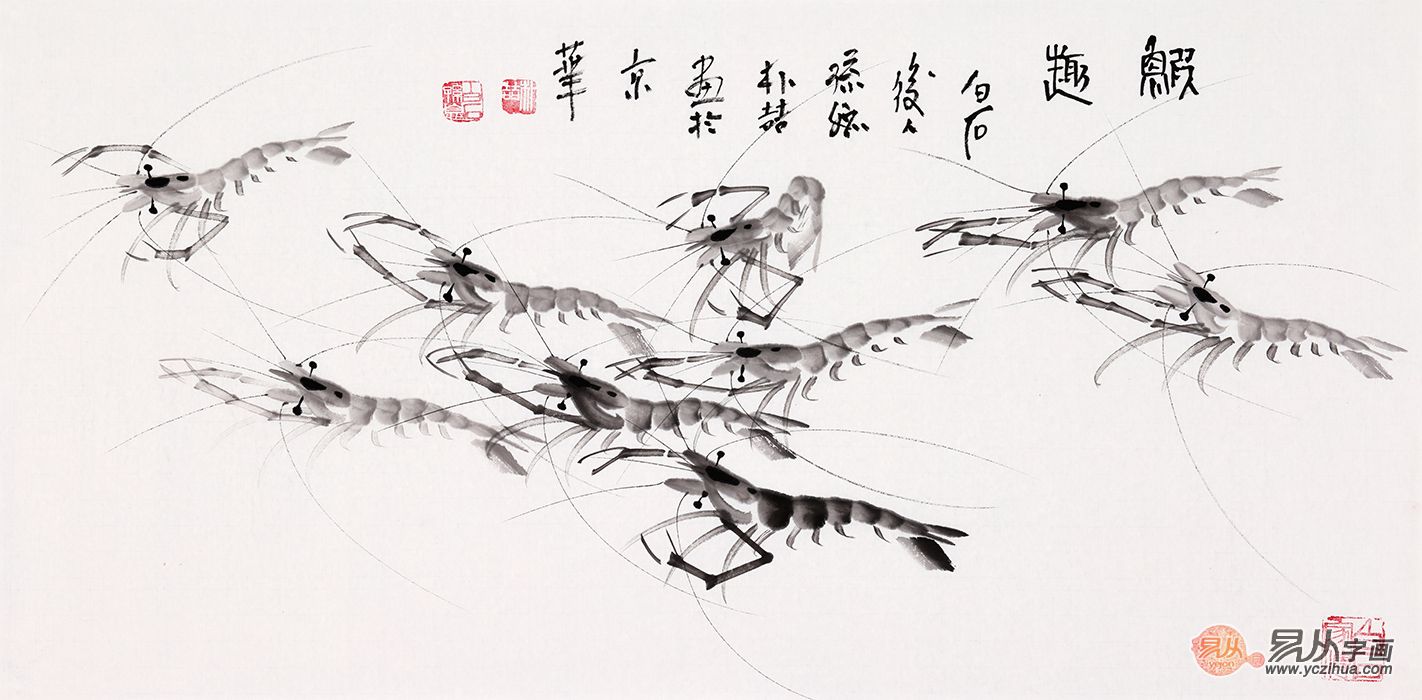 鰕
趣
白石
後人
孫媳
朴喆
畫於
京
華
朴喆
易从
易从字画
www.yczihua.com